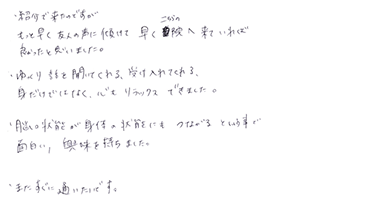 ・紹介で来たのですが
もっと早く友人の声に傾けて 早く こちらの 院へ来ていれば
良かったと思いました。
・ゆっくり話を聞いてくれる、受け入れてくれる、
身だけではなく、心もリラックスできました。
・脳の状態が身体の状態にもつながるという事で
面白い、興味を持ちました。
・またすぐに通いたいです。